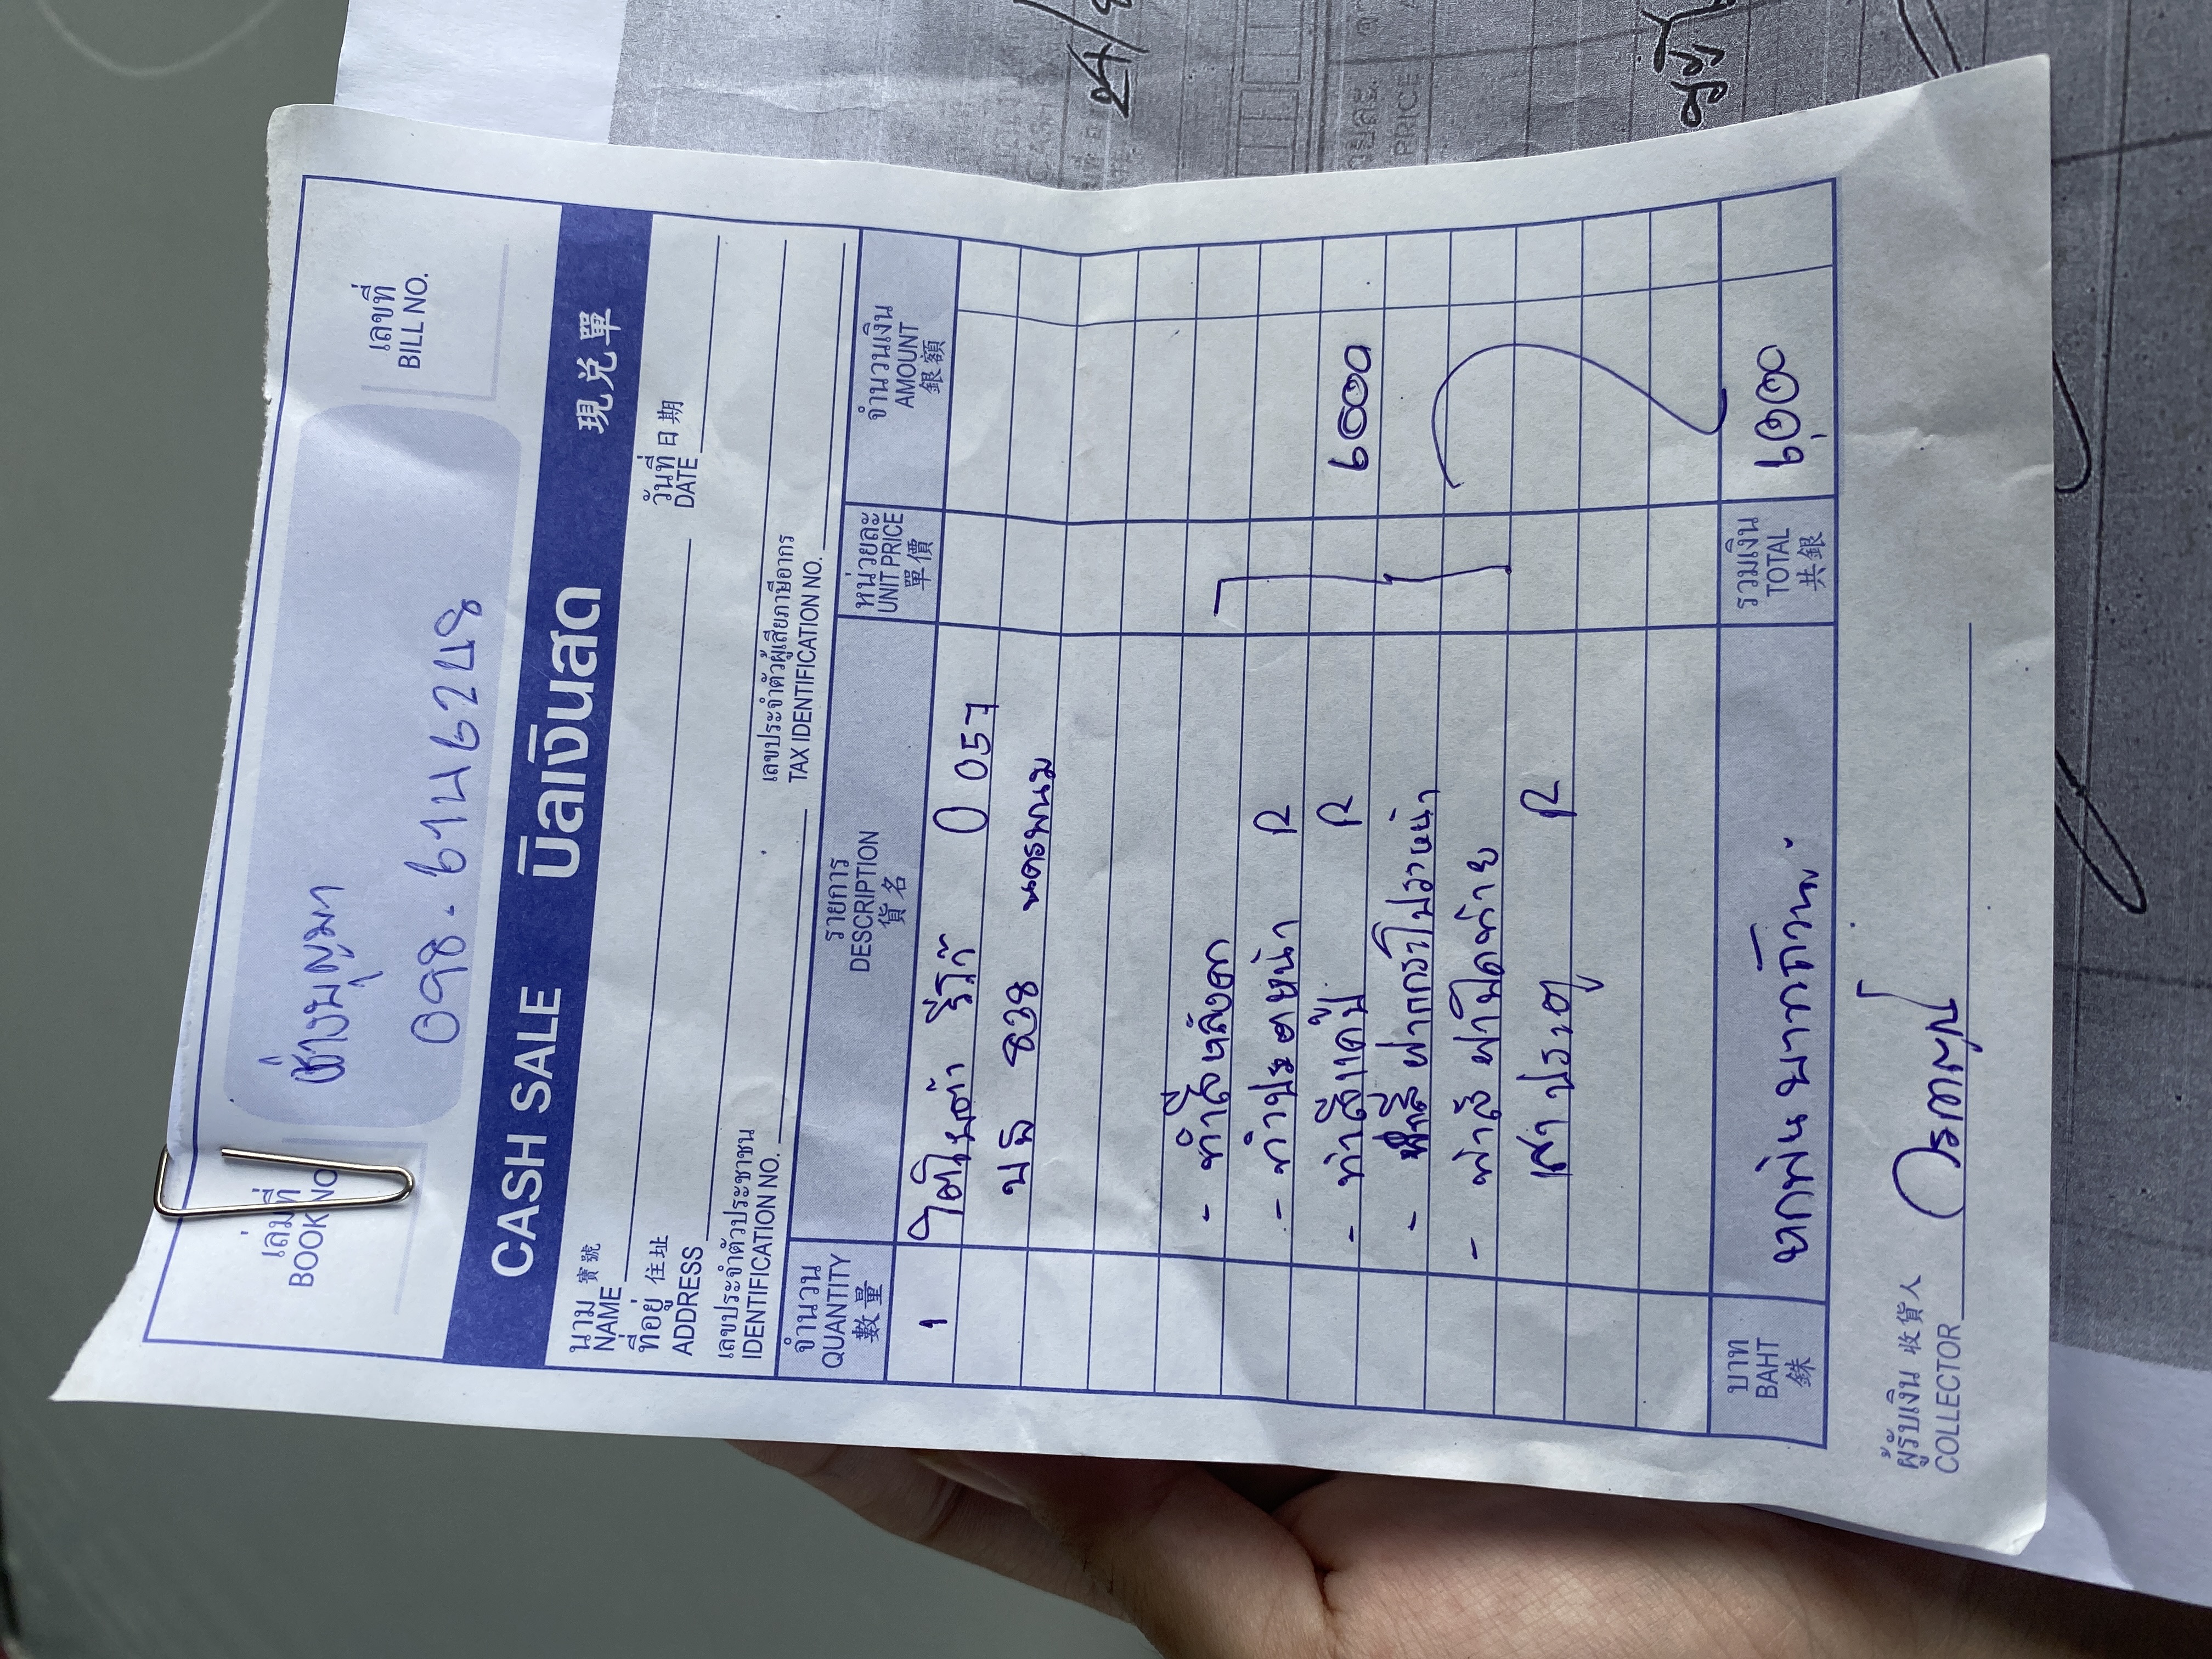 เล่มที่
BOOK NO.
เลขที่
BILL NO.
ช่างบุญมา
098-6146248
CASH SALE บิลเงินสด 現兑單
นาม 寶號
NAME
วันที่ 日期
DATE
ที่อยู่ 住址
ADDRESS
เลขประจำตัวประชาชน
IDENTIFICATION NO.
เลขประจำตัวผู้เสียภาษีอากร
TAX IDENTIFICATION NO.
จำนวน
QUANTITY
數量
รายการ
DESCRIPTION
貨名
หน่วยละ
UNIT PRICE
單價
จำนวนเงิน
AMOUNT
銀額
1 โตโยต้า รีโว่ 0057
บธ 838 นครพนม
- ทำสีหลังคา
- ทำประตูหน้า R
- ทำสีแก้ม R 6000
- ทำสี ฝากระโปรงหน้า
- ทำสี ฝาปิดท้าย
เสาประตู R
บาท
BAHT
銖
หกพันบาทถ้วน.
รวมเงิน
TOTAL
共銀
6,000
ผู้รับเงิน 收貨人
COLLECTOR